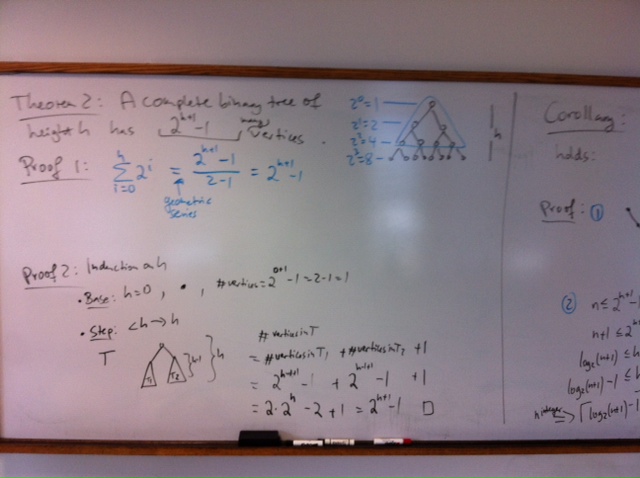 Theorem 2: A complete binary tree of
height h has 2^{h+1} - 1 many vertices.
2^0 = 1
2^1 = 2
2^2 = 4
2^3 = 8
h
Proof 1: \sum_{i=0}^{h} 2^i = \frac{2^{h+1} - 1}{2 - 1} = 2^{h+1} - 1
geometric
series
Proof 2: Induction on h
• Base: h=0, •, #vertices = 2^{0+1} - 1 = 2 - 1 = 1
• Step: <h → h
T
T1 T2 h-1 h
# vertices in T
= #vertices in T1 + #vertices in T2 + 1
= 2^{h-1+1} - 1 + 2^{h-1+1} - 1 + 1
= 2·2^h - 2 + 1 = 2^{h+1} - 1 □
Corollary:
holds:
Proof: ①
② n ≤ 2^{h+1} -
n+1 ≤ 2^h
log2(n+1) ≤ h
log2(n+1) - 1 ≤ h
h integer ⇒ ⌈log2(n+1) - 1